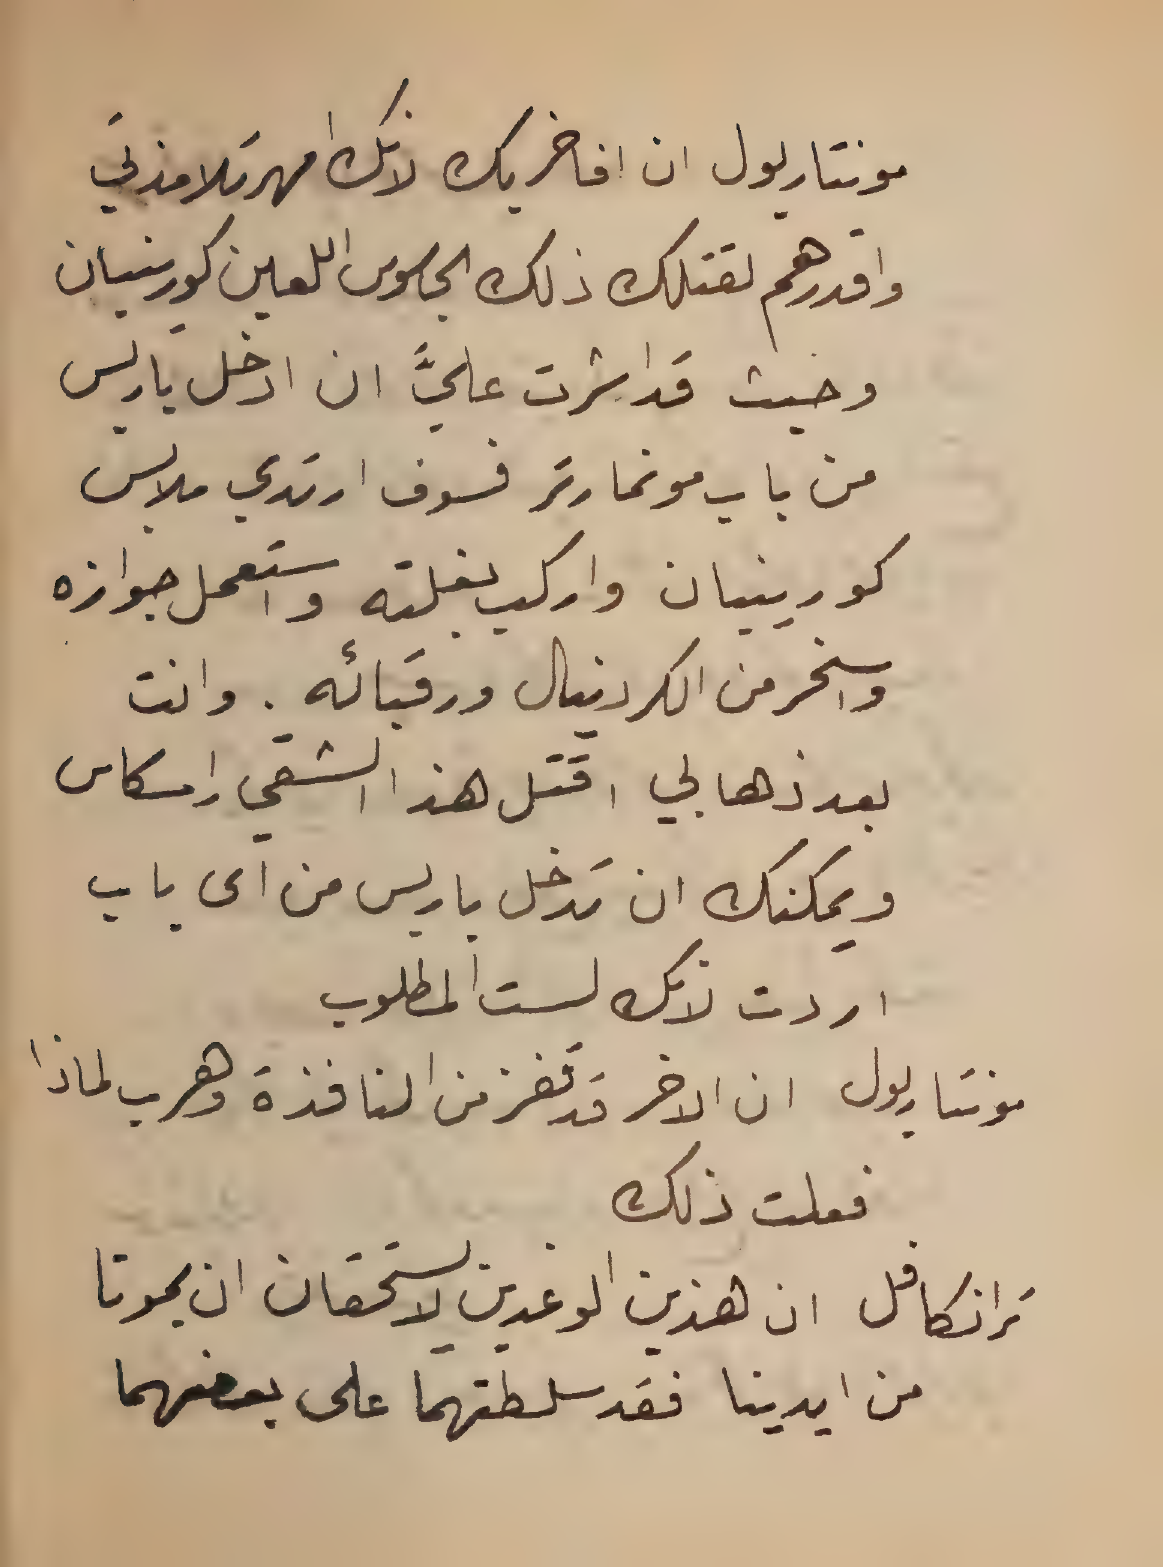 مونتاريول ان افاخر بك لانك امهر تلامذتي
واقدرهم لقتلك ذلك الجاسوس اللعين كورينيان
وحيث قد اشرت عليَّ ان ادخل باريس
من باب مونمارتر فسوف ارتدي ملابس
كورينيان واركب بغلته واستعمل جوازه
واسخر من الكردينال ورقبائه . وانت
بعد ذهابي اقتل هذا الشقي راسكاس
ويمكنك ان تدخل باريس من اى باب
اردت لانك لست المطلوب
مونتاريول ان الاخر قد قفز من النافذة وهرب لماذا
فعلت ذلك
ترانكافل ان هذين الوغدين لا يستحقان ان يموتا
من ايدينا فقد سلطتهما على بعضهما